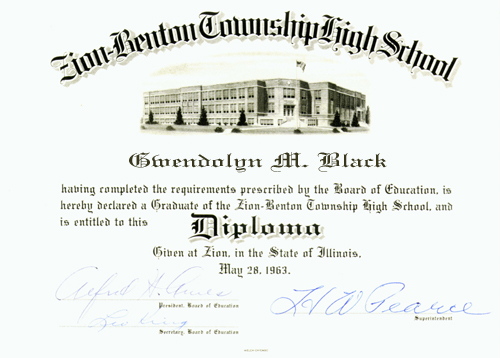 Zion-Benton Township High School
Gwendolyn M. Black
having completed the requirements prescribed by the Board of Education, is
hereby declared a Graduate of the Zion-Benton Township High School, and
is entitled to this Diploma
Given at Zion, in the State of Illinois,
May 28, 1963.
Alfred H. Ames
President, Board of Education
H W Pearce
Superintendent
Secretary, Board of Education